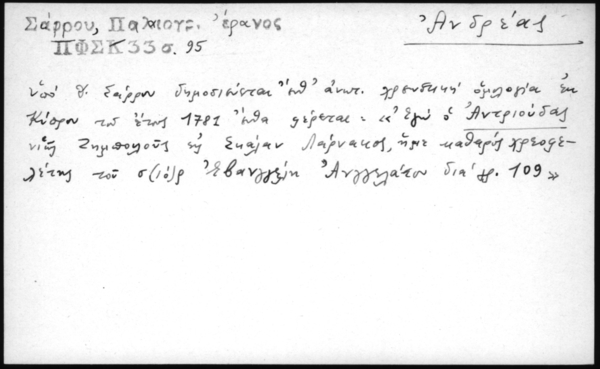 Σάρρου, Παλαιογρ. ἔρανος
ΠΦΣΚ 33 σ. 95
Ἀνδρέας
ὑπό Δ. Σάρρου δημοσιεύεται ἔνθ' ἀνωτ. χρεωστική ὁμολογία ἐκ
Κύπρου τοῦ ἔτους 1782 ἔνθα φέρεται : «Ἐγώ ὁ Ἀντριούδας
υἱός Ζημπουλοῦς ἐκ Σκάλαν Λάρνακος, ἤμε καθαρός χρεοφε-
λέτης τοῦ σ(ιὸ)ρ Ἐβανγγελῆ Ἀνγγελάτου διά γρ. 109»